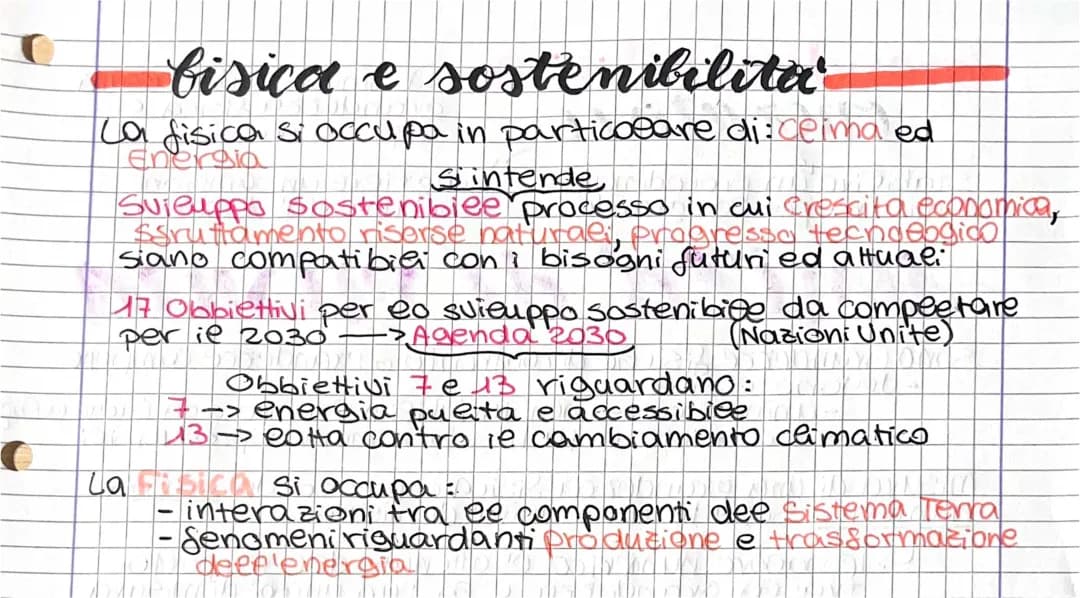 fisica e sostenibilità
La fisica si occupa in particolare di: clima ed
Energia
si intende
Sviluppo sostenibile processo in cui crescita economica,
sfruttamento risorse naturali, progresso tecnologico
siano compatibili con i bisogni futuri ed attuali
17 Obbiettivi per lo sviluppo sostenibile da completare
per il 2030 —> Agenda 2030 (Nazioni Unite)
Obbiettivi 7 e 13 riguardano:
7 -> energia pulita e accessibile
13 -> lotta contro il cambiamento climatico
La Fisica si occupa:
- interazioni tra le componenti del Sistema Terra
- fenomeni riguardanti produzione e trasformazione
dell'energia